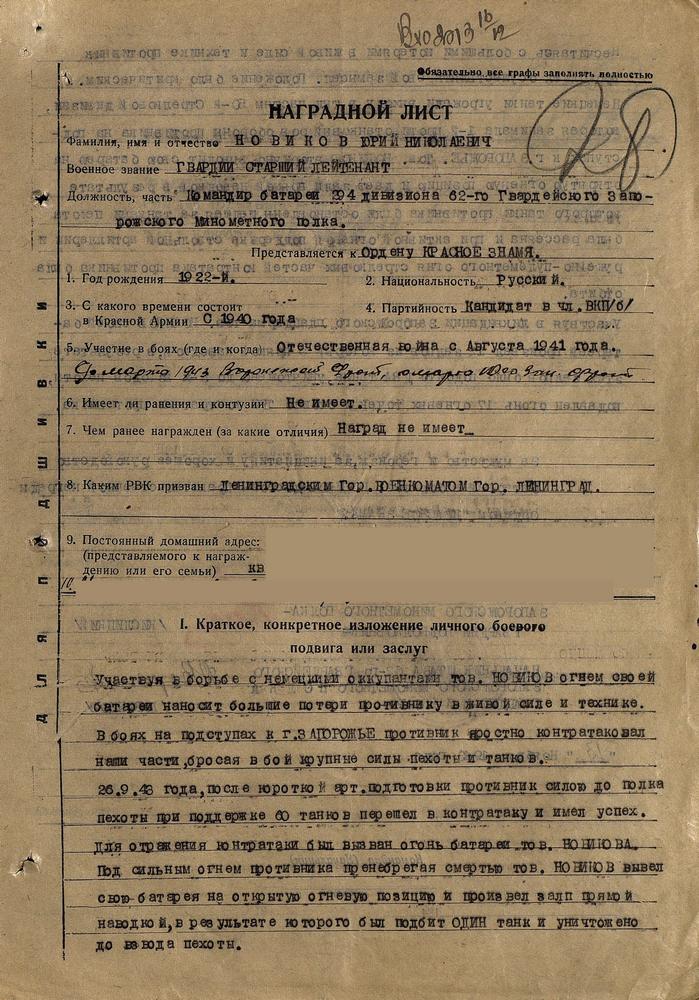 Обязательно все графы заполнять полностью
НАГРАДНОЙ ЛИСТ
Фамилия, имя и отчество НОВИКОВ ЮРИЙ НИКОЛАЕВИЧ
Военное звание ГВАРДИИ СТАРШИЙ ЛЕЙТЕНАНТ
Должность, часть Командир батареи 294 дивизиона 62-го Гвардейского Запо-
рожского Минометного полка.
Представляется к Ордену КРАСНОЕ ЗНАМЯ.
1. Год рождения 1922-й.
2. Национальность Русский.
3. С какого времени состоит
в Красной Армии С 1940 года
4. Партийность Кандидат в чл. ВКП/б/
5. Участие в боях (где и когда) Отечественная война с Августа 1941 года.
До марта 1943 Воронежский Фронт, с марта Юго Зап. Фронт
6. Имеет ли ранения и контузии Не имеет.
7. Чем ранее награжден (за какие отличия) Наград не имеет
8. Каким РВК призван Ленинградским Гор.ВОЕНКОМАТОМ Гор. ЛЕНИНГРАД.
9. Постоянный домашний адрес:
(представляемого к награж-
дению или его семьи) кв
10.
ДЛЯ ПОДШИВКИ
I. Краткое, конкретное изложение личного боевого
подвига или заслуг
Участвуя в борьбе с немецкими оккупантами тов. НОВИКОВ огнем своей
батареи наносит большие потери противнику в живой силе и технике.
В боях на подступах к г.ЗАПОРОЖЬЕ противник яростно контратаковал
наши части,бросая в бой крупные силы пехоты и танков.
26.9.43 года,после короткой арт.подготовки противник силою до полка
пехоты при поддержке 60 танков перешел в контратаку и имел успех.
Для отражения контратаки был вызван огонь батареи тов. НОВИКОВА.
Под сильным огнем противника пренебрегая смертью тов. НОВИКОВ вывел
свою батарея на открытую огневую позицию и произвел залп прямой
наводкой,в результате которого был подбит ОДИН танк и уничтожено
до взвода пехоты.